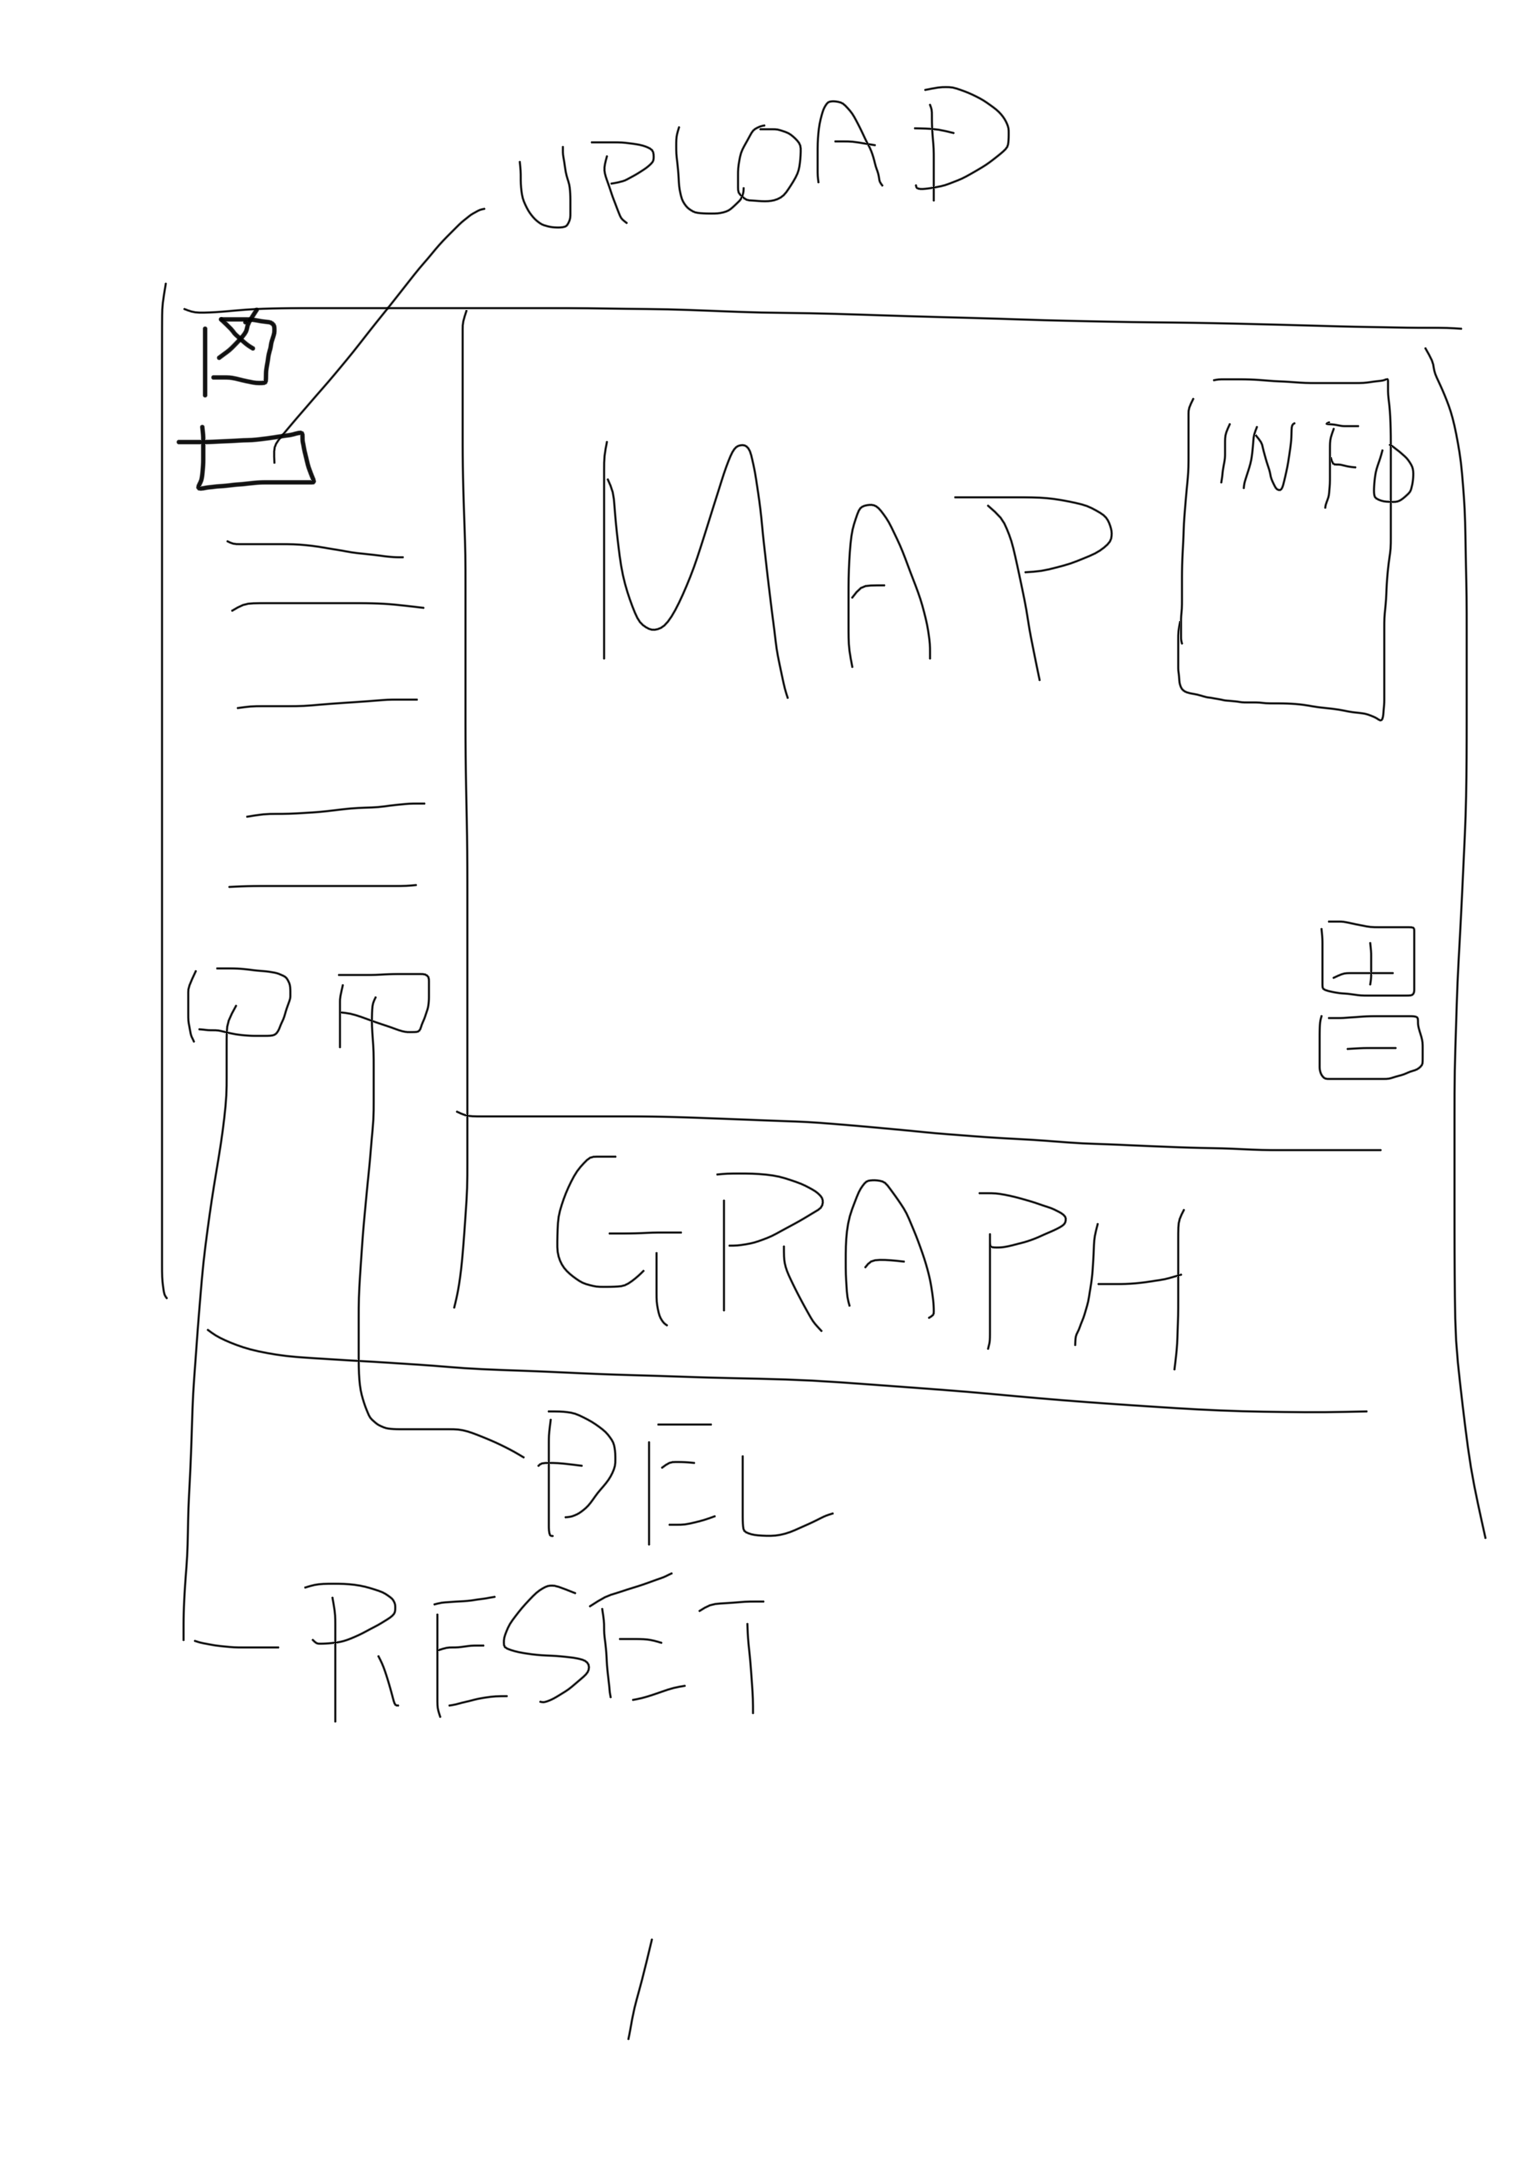 UPLOAD
MAP
INFO
+
-
GRAPH
DEL
RESET